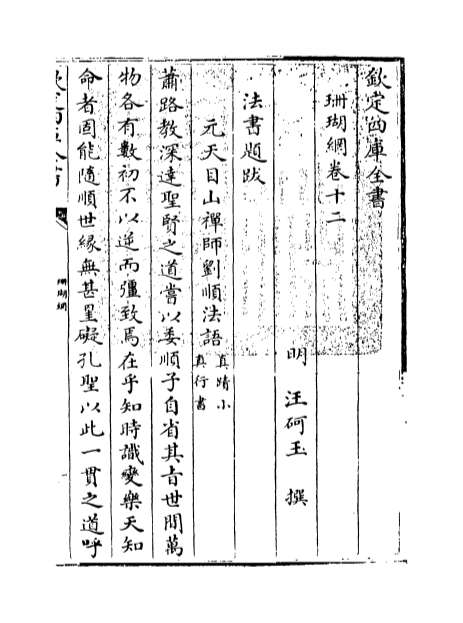 欽定四庫全書
珊瑚網卷十二
明 汪砢玉 撰
法書題跋
元天目山禪師劉順法語真蹟小真行書
蕭路教深達聖賢之道嘗以委順子自省其旨世間萬
物各有數初不以逆而彊致焉在乎知時識變樂天知
命者固能隨順世緣無甚罣礙孔聖以此一貫之道呼
欽定四庫全書
珊瑚網